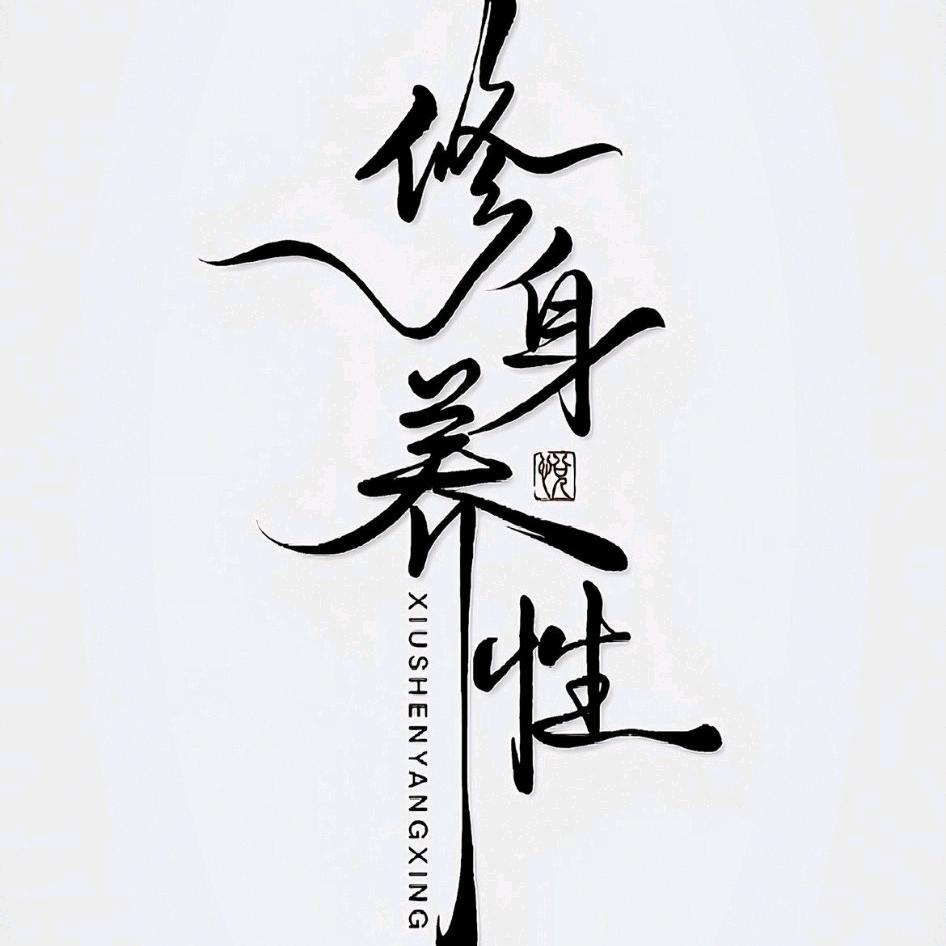 修身养性
悦
XIUSHENYANGXING